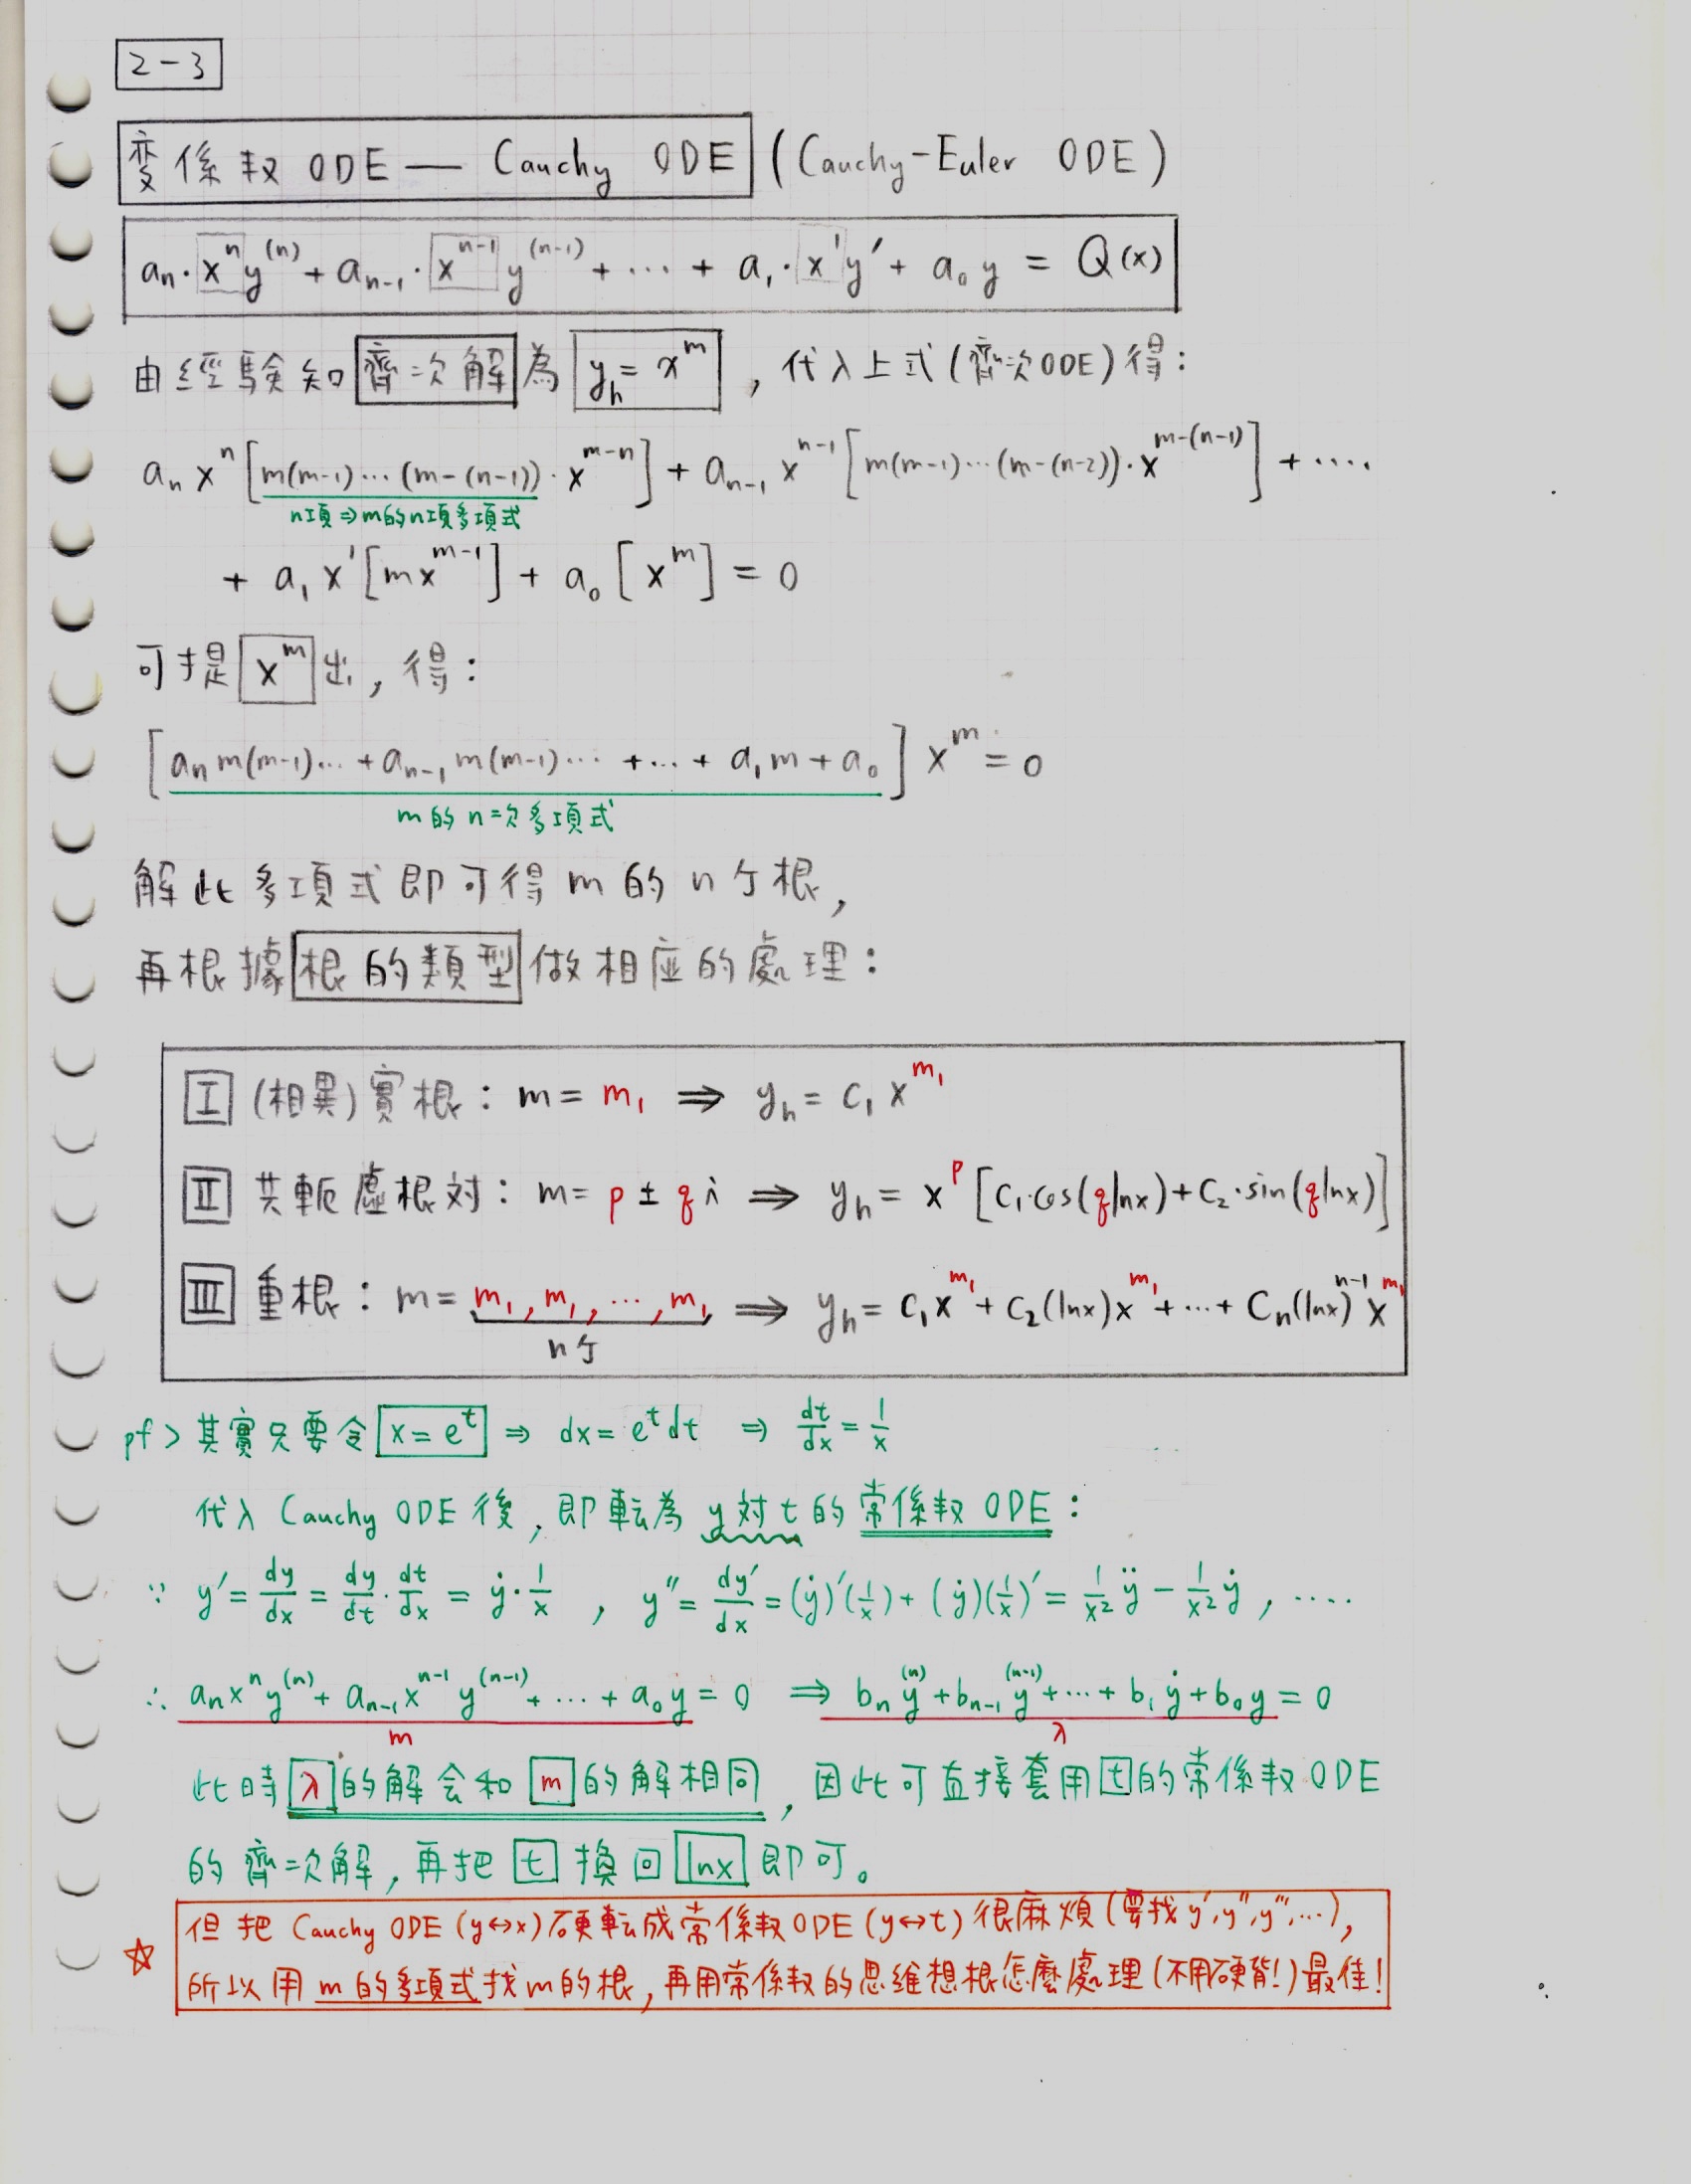 2-3
変係数 ODE — Cauchy ODE (Cauchy-Euler ODE)
aₙ·xⁿy⁽ⁿ⁾ + aₙ₋₁·xⁿ⁻¹y⁽ⁿ⁻¹⁾ + ⋯ + a₁·x¹y′ + a₀y = Q(x)
由經驗知 齊次解 為 y_h = x^m , 代入上式(齊次ODE)得:
aₙxⁿ[m(m-1)⋯(m-(n-1))·x^(m-n)] + aₙ₋₁xⁿ⁻¹[m(m-1)⋯(m-(n-2))·x^(m-(n-1))] + ⋯.
n項⇒m的n項多項式
+ a₁x¹[mx^(m-1)] + a₀[x^m] = 0
可提 x^m 出, 得:
[aₙm(m-1)⋯ + aₙ₋₁m(m-1)⋯ + ⋯ + a₁m + a₀] x^m = 0
m的n次多項式
解此多項式即可得m的n个根,
再根據 根的類型 做相应的處理:
I (相異)實根: m = m₁ ⇒ y_h = c₁x^(m₁)
II 共軛虛根対: m = p ± qi ⇒ y_h = x^p [c₁·cos(qlnx) + c₂·sin(qlnx)]
III 重根: m = m₁, m₁, ⋯, m₁ ⇒ y_h = c₁x^(m₁) + c₂(lnx)x^(m₁) + ⋯ + cₙ(lnx)ⁿ⁻¹x^(m₁)
n个
pf> 其實只要令 x = e^t ⇒ dx = e^t dt ⇒ dt/dx = 1/x
代入 Cauchy ODE 後, 即転為 y対t的 常係数 ODE:
∵ y′ = dy/dx = dy/dt · dt/dx = ẏ · 1/x , y″ = dy′/dx = (ẏ)′(1/x) + (ẏ)(1/x)′ = 1/x² ÿ − 1/x² ẏ , ⋯.
∴ aₙxⁿy⁽ⁿ⁾ + aₙ₋₁xⁿ⁻¹y⁽ⁿ⁻¹⁾ + ⋯ + a₀y = 0 ⇒ bₙy⁽ⁿ⁾ + bₙ₋₁y⁽ⁿ⁻¹⁾ + ⋯ + b₁ẏ + b₀y = 0
m λ
此時 λ 的解会和 m 的解相同, 因此可直接套用 t 的常係数 ODE
的齊次解, 再把 t 換回 lnx 即可。
☆ 但把 Cauchy ODE (y↔x) 硬転成常係数 ODE (y↔t) 很麻煩 (要找 y′, y″, y‴, ⋯),
所以用 m 的多項式找 m 的根, 再用常係数的思維想根怎麼處理 (不用硬背!) 最佳!